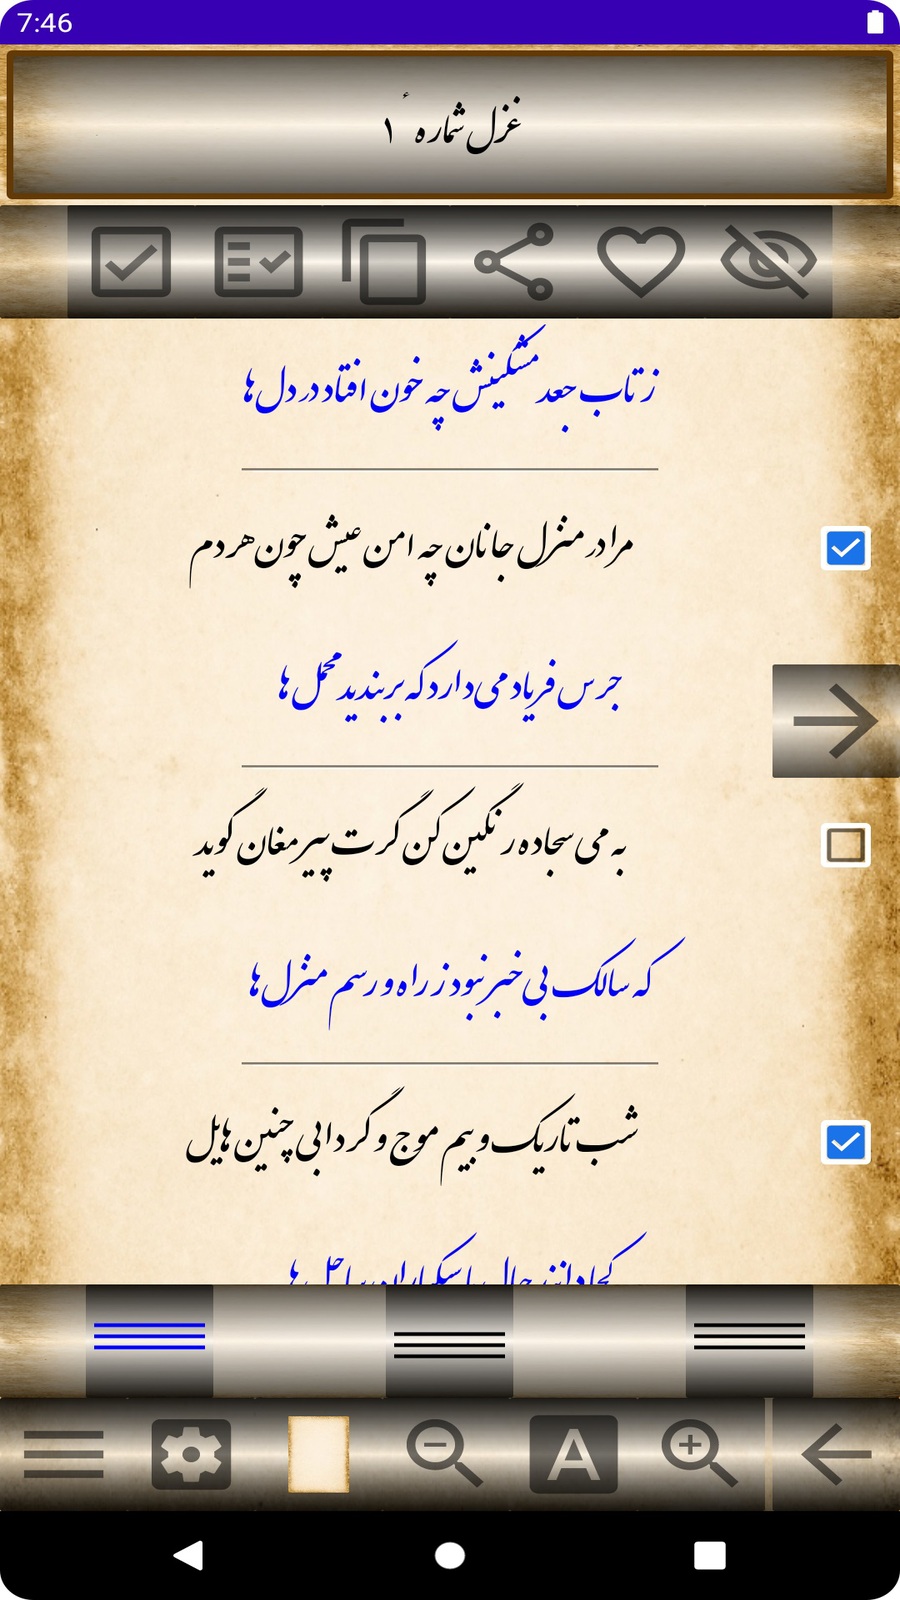 7:46
غزل شمارهٔ ۱
ز تاب جعد مشکینش چه خون افتاد در دل‌ها
مرا در منزل جانان چه امن عیش چون هر دم
جرس فریاد می‌دارد که بربندید محمل‌ها
به می سجاده رنگین کن گرت پیر مغان گوید
که سالک بی‌خبر نبود ز راه و رسم منزل‌ها
شب تاریک و بیم موج و گردابی چنین هایل
کجا دانند حال ما سبکباران ساحل‌ها
A